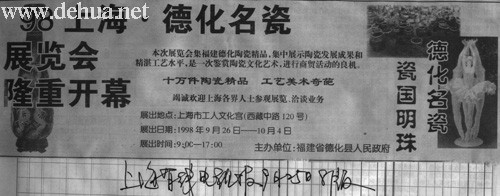 www.dehua.net
98上海 德化名瓷
展览会
隆重开幕
本次展览会集福建德化陶瓷精品,集中展示陶瓷发展成果和
精湛工艺水平,是一次鉴赏陶瓷文化艺术,进行商贸活动的良机。
十万件陶瓷精品 工艺美术奇葩
竭诚欢迎上海各界人士参观展览、洽谈业务
展出地点:上海市工人文化宫(西藏中路120号)
展出日期:1998年9月26日—10月4日
展出时间:9:00—17:00
主办单位:福建省德化县人民政府
德化名瓷
瓷国明珠
上海 电视报9月25日8版